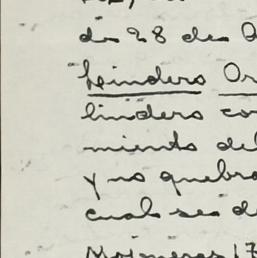 de 28 de
Lindero Or
lindero co
miento del
y no quebra
cual se d